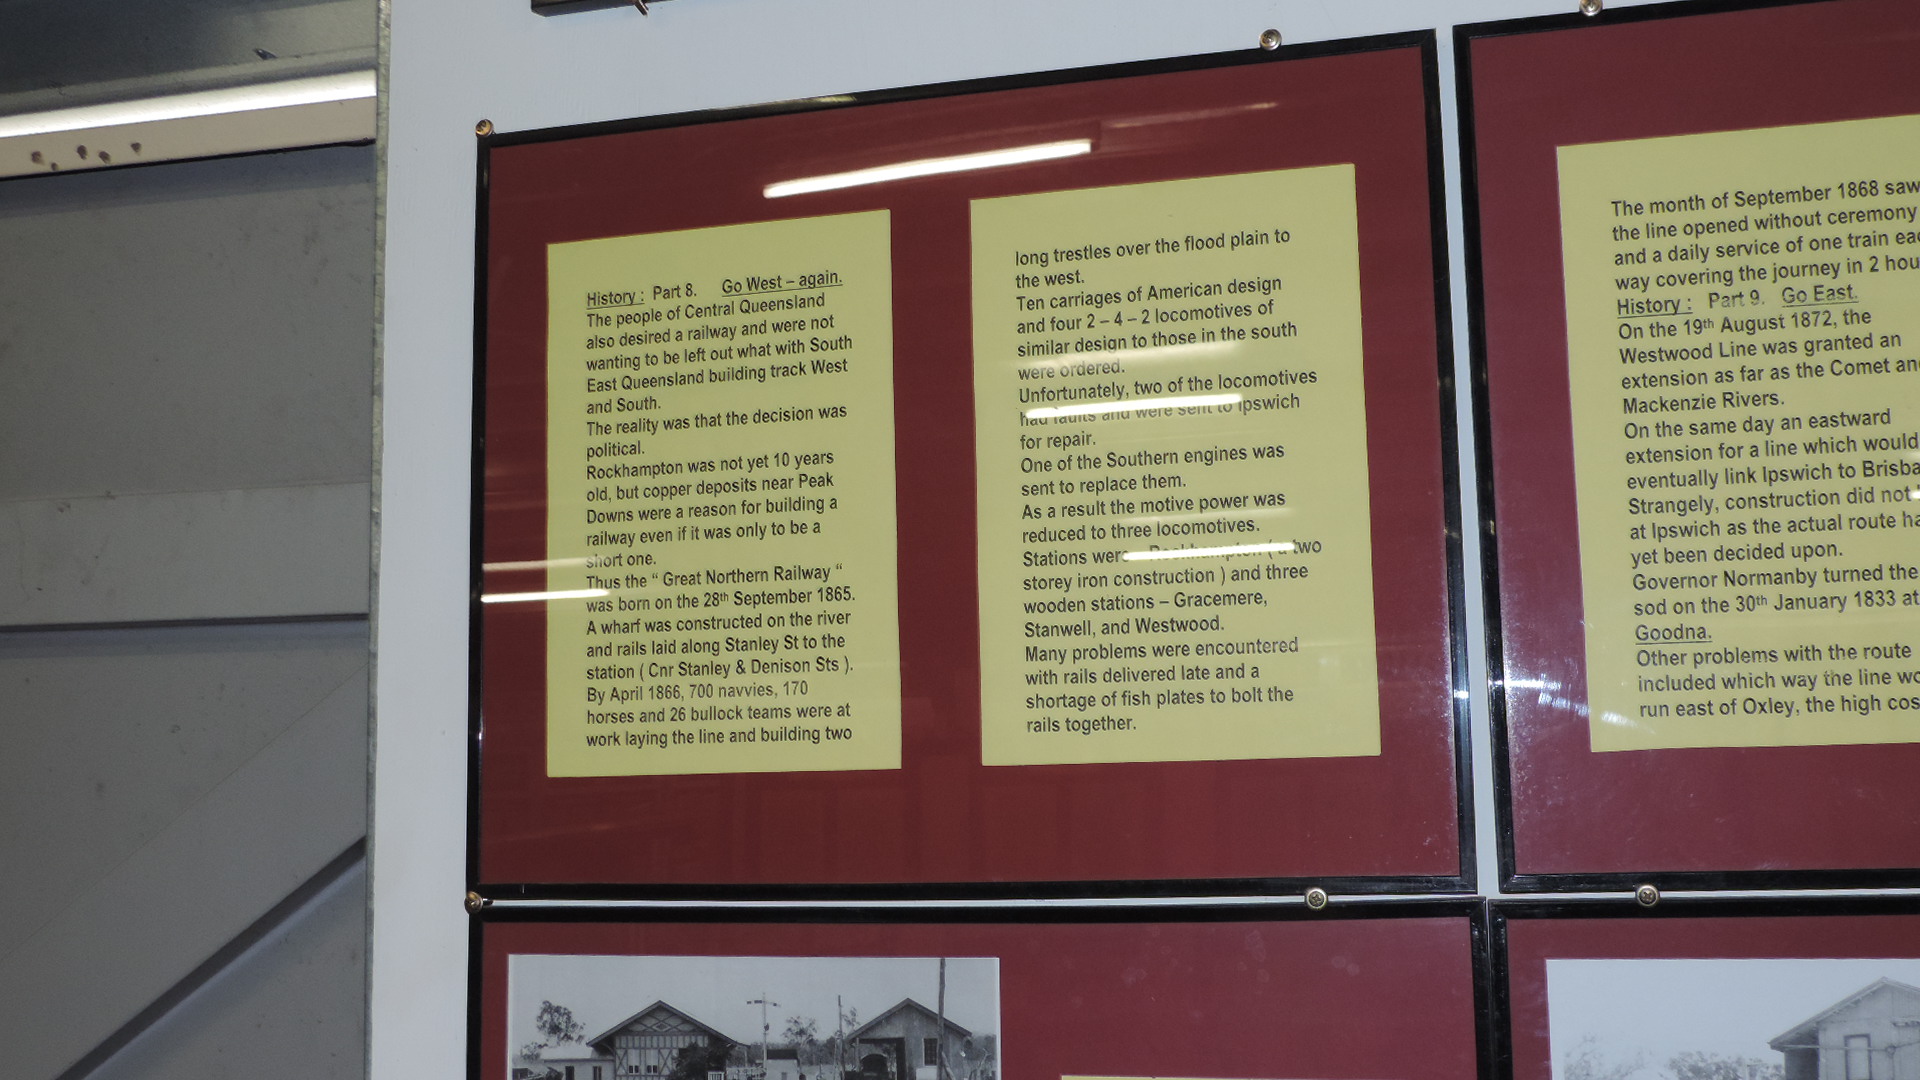 History : Part 8. Go West – again.
The people of Central Queensland
also desired a railway and were not
wanting to be left out what with South
East Queensland building track West
and South.
The reality was that the decision was
political.
Rockhampton was not yet 10 years
old, but copper deposits near Peak
Downs were a reason for building a
railway even if it was only to be a
short one.
Thus the “ Great Northern Railway “
was born on the 28th September 1865.
A wharf was constructed on the river
and rails laid along Stanley St to the
station ( Cnr Stanley & Denison Sts ).
By April 1866, 700 navvies, 170
horses and 26 bullock teams were at
work laying the line and building two
long trestles over the flood plain to
the west.
Ten carriages of American design
and four 2 – 4 – 2 locomotives of
similar design to those in the south
were ordered.
Unfortunately, two of the locomotives
had faults and were sent to Ipswich
for repair.
One of the Southern engines was
sent to replace them.
As a result the motive power was
reduced to three locomotives.
Stations were – Rockhampton ( a two
storey iron construction ) and three
wooden stations – Gracemere,
Stanwell, and Westwood.
Many problems were encountered
with rails delivered late and a
shortage of fish plates to bolt the
rails together.
The month of September 1868 saw
the line opened without ceremony
and a daily service of one train
way covering the journey in 2
History : Part 9. Go East.
On the 19th August 1872, the
Westwood Line was granted an
extension as far as the Comet
Mackenzie Rivers.
On the same day an eastward
extension for a line which would
eventually link Ipswich to
Strangely, construction did not
at Ipswich as the actual route
yet been decided upon.
Governor Normanby turned the
sod on the 30th January 1833 at
Goodna.
Other problems with the route
included which way the line
run east of Oxley, the high